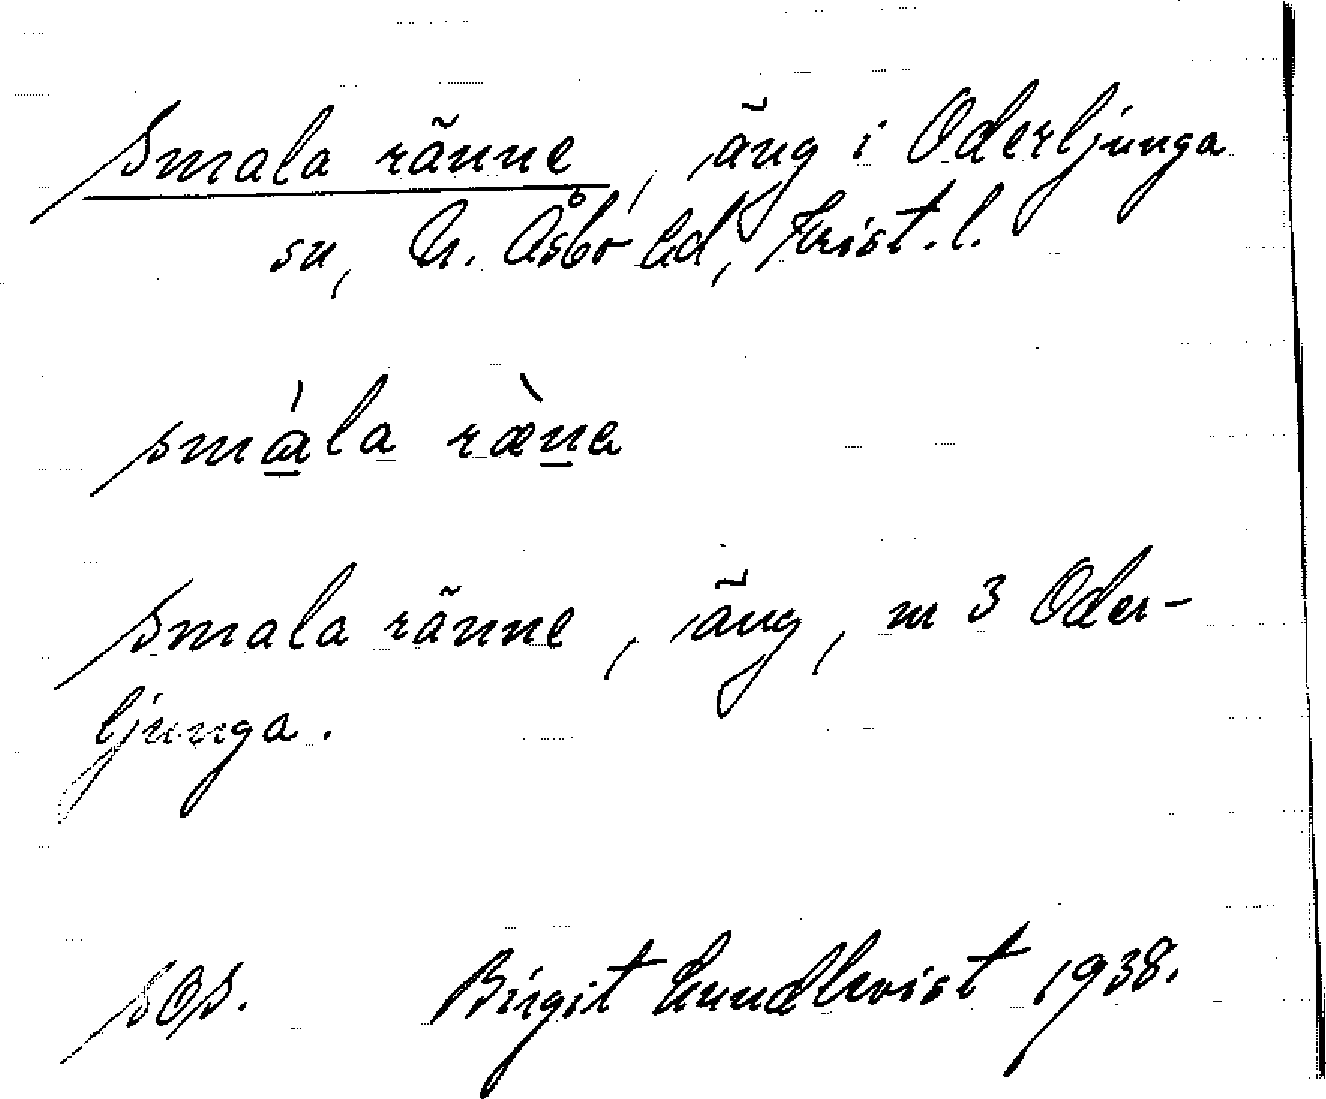 Smala ränne, äng i Oderljunga
sn, N. Åsbo hd, Krist. l.
smála ræ̀na
Smala ränne, äng, nr 3 Oder-
ljunga.
SOS. Birgit Lundkvist 1938.